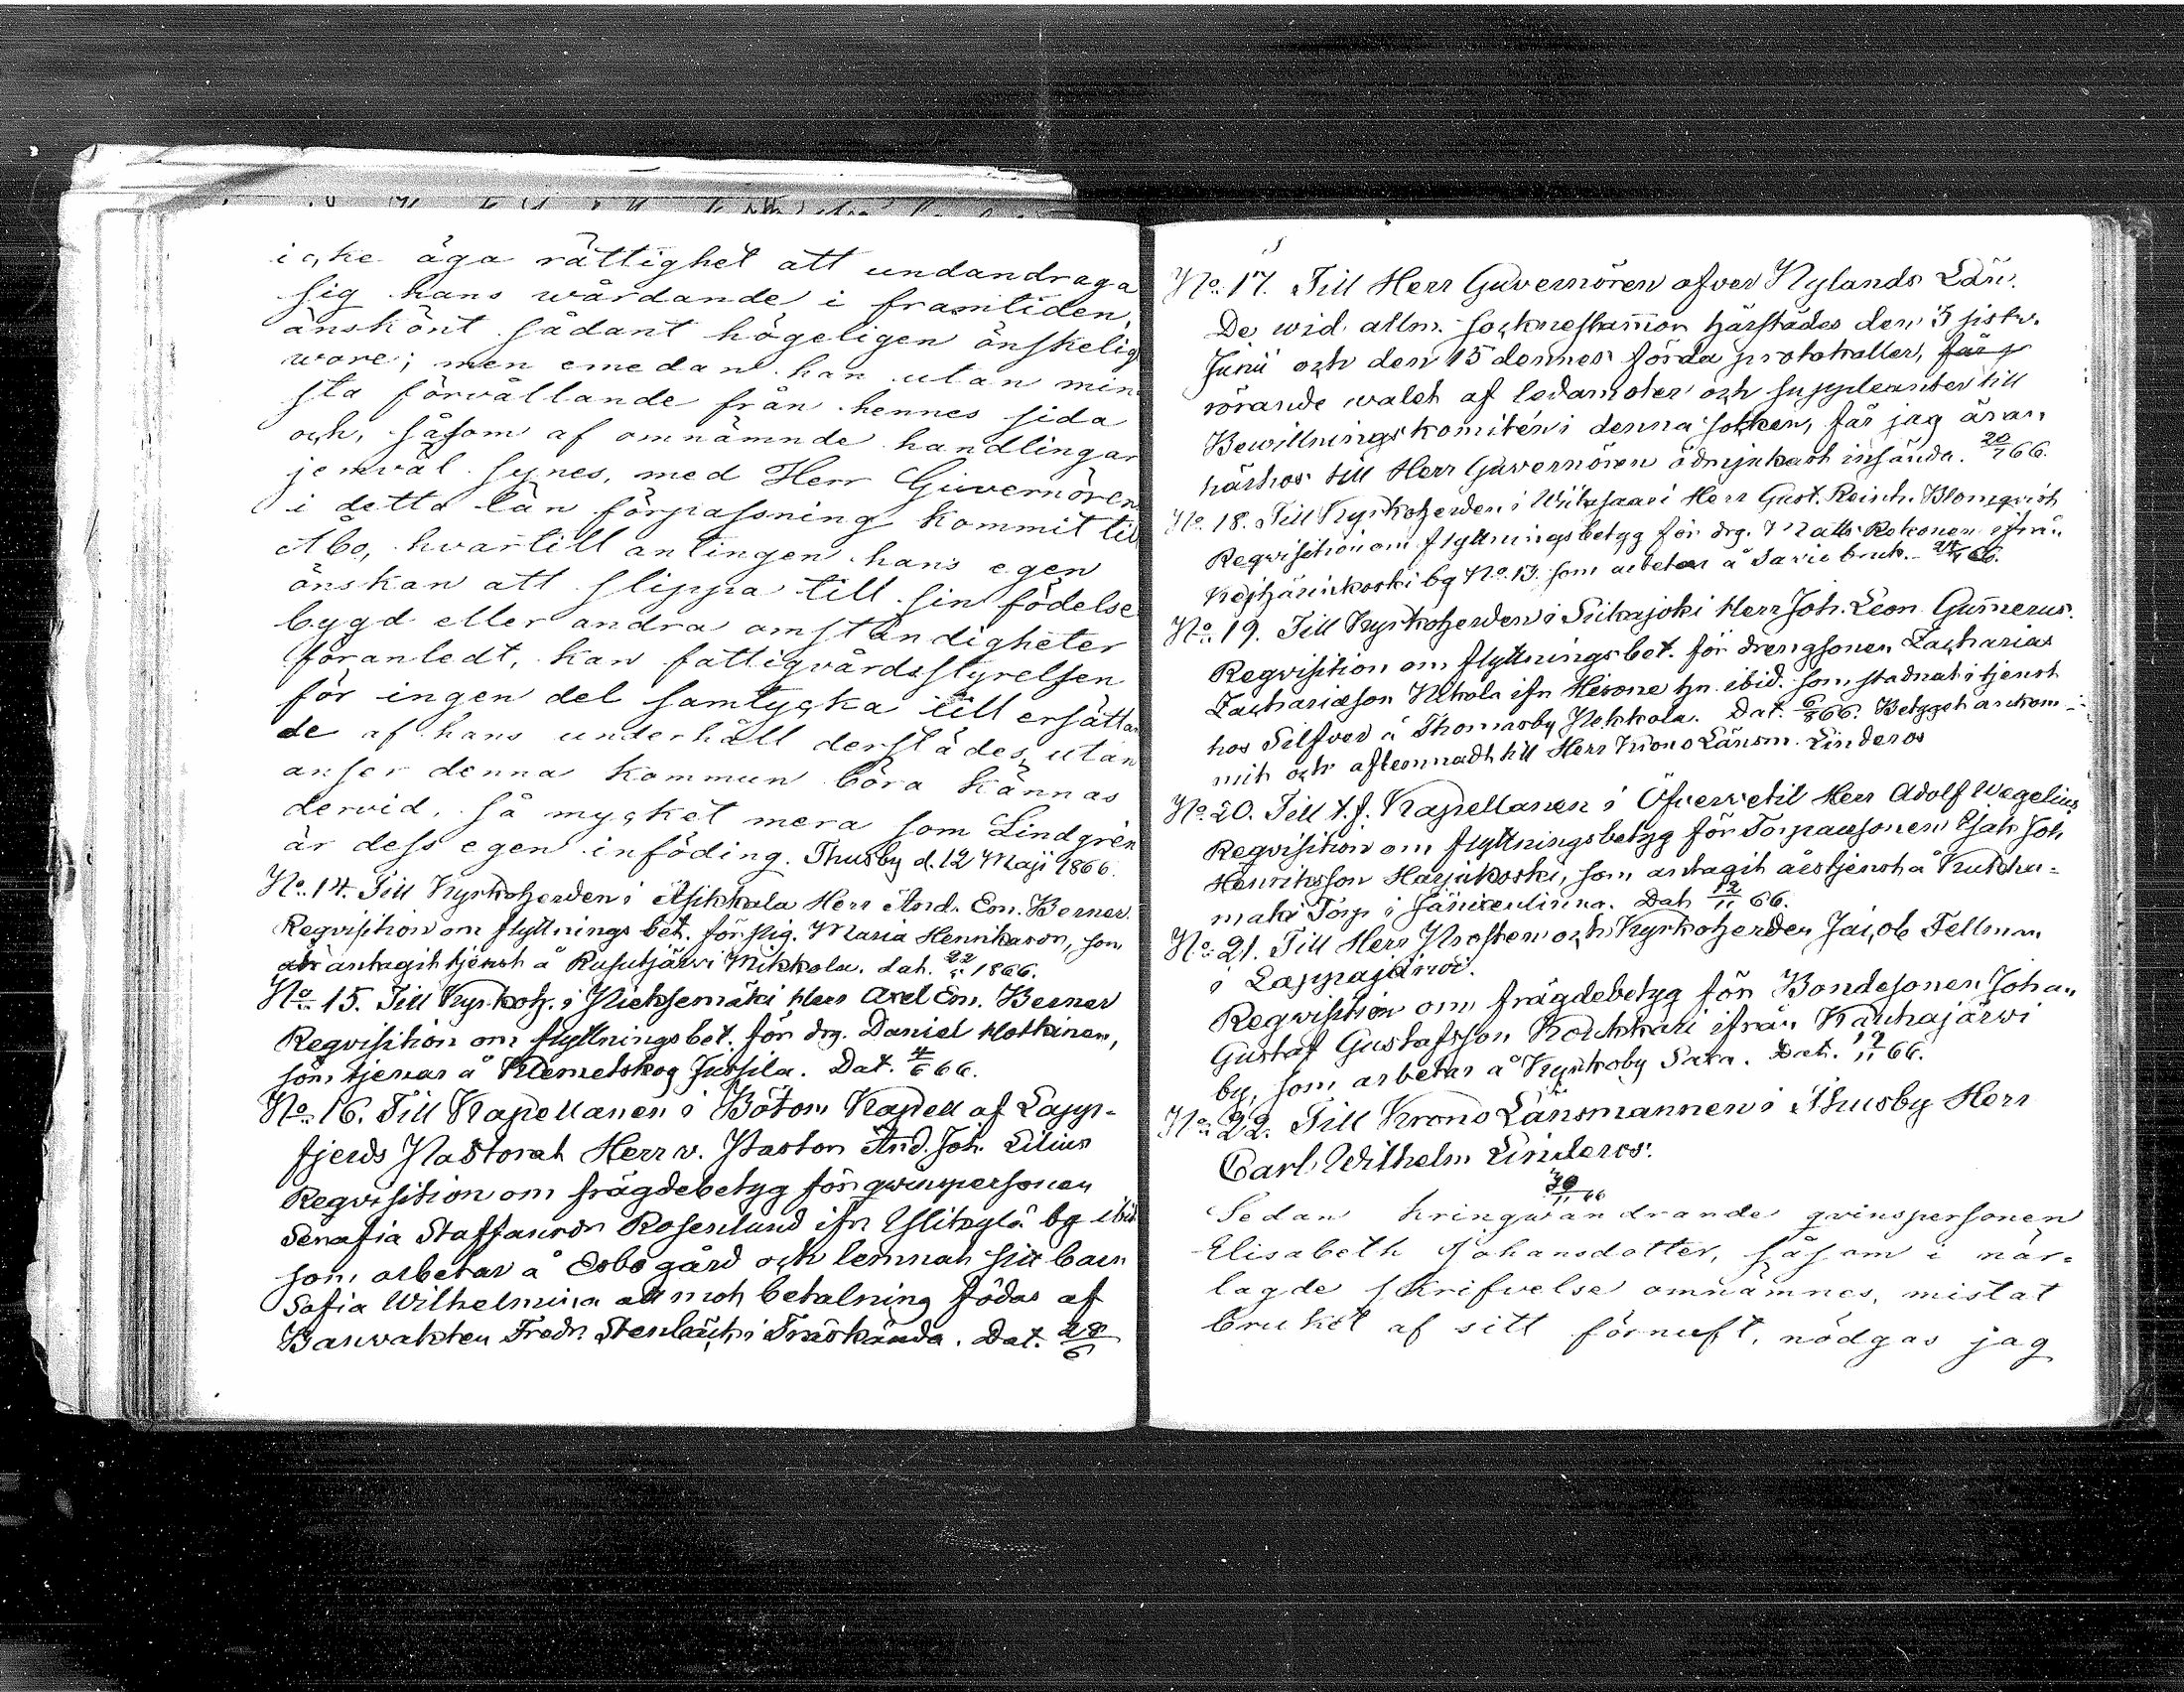 icke äga rättighet att undandraga
sig hans wårdande i framtiden,
änskönt sådant högeligen önskelig
wore; men emedan han utan min
sta förvållande från hennes sida
och, såsom af omnämnde handlingar
jemväl synes, med Herr Guvernören
i detta län förpassning kommit till
Åbo, hvartill antingen hans egen
önskan att slippa till sin födelse
bygd eller andra omständigheter
föranledt, kan fattigvårdsstyrelsen
för ingen del samtycka till ersättan
de af hans underhåll derstädes, utan
anser denna kommun böra kännas
dervid, så mycket mera som Lindgrén
är dess egen inföding. Thusby d. 12 Maji 1866.
No. 14. Till Kyrkoherden i Asikkala Herr And. Em. Berner.
Reqvisition om flyttnings bet. för pig. Maria Henriksson, som
antagit tjenst å Rusutjärvi Mikkola. dat. 22/" 1866.
No 15. Till Kyrkoh. i Pieksemäki Herr Axel Em. Berner
Reqvisition om flyttningsbet. för drg. Daniel Hotkinen,
som tjenar å Klemetskog Jussila. Dat. 4/6 66.
No. 16. Till Kapellanen i Bötom Kapell af Lapp-
fjerds Pastorat Herr v. Pastor And. Joh. Lilius
Reqvisition om frägdebetyg för qvinspersonen
Serafia Staffansdr Rosenlund ifn by ibid
som arbetar å Esbo gård och lemnat sitt barn
Sofia Wilhelmina att mot betalning födas af
Banvakten Fredr. Stenbäck i Träskända. Dat. 28/6
No. 17. Till Herr Guvernören öfver Nylands Län.
De wid allm. socknestämmor härstädes den 3 sistv.
Junii och den 15 dennes förda protokoller, får j
rörande walet af ledamöter och suppleanter till
Bewillningskomitén i denna socken, får jag äran
härhos till Herr Guvernören ödmjukast insända. 20/7 66.
No. 18. Till Kyrkoherden i Wiitasaari Herr Gust. Reinh. Blomqvist
Reqvisition om flyttningsbetyg för drg. Matts Rokonen ifrån
Keihärinkoski by No. 13. som arbetar å Savio bruk. 24/7 66.
No. 19. Till Kyrkoherden i Siikajoki Herr Joh. Leon. Gummerus.
Reqvisition om flyttningsbet. för drengsonen Zacharias
Zachariasson ifn tzn ibid. som stadnat i tjenst
hos Silfver å Thomasby Pekkola. Dat. 6/8 66. Betyget ankom-
mit och aflemnadt till Herr Krono Länsm. Linderos
No. 20. Till t.f. Kapellanen i Öfvervetil Herr Adolf Wegelius
Reqvisition om flyttningsbetyg för Torparsonen Isak Joh
Henriksson Harjukoski, som antagit årstjenst å
mäki Torp i Dat. 12/11 66.
No. 21. Till Herr Prosten och Kyrkoherden Jacob Fellman
i Lappajärvi.
Reqvisition om frägdebetyg för Bondesonen Johan
Gustaf Gustafsson ifrån Kauhajärwi
by, som arbetar å Kyrkoby Saxa. Dat. 12/11 66.
No. 22. Till Krono Länsmannen i Thusby Herr
Carl Wilhelm Linderos.
30/11 66
Sedan kringwandrande qvinspersonen
Elisabeth Johansdotter, såsom i när-
lagde skrifvelse omnämnes, mistat
bruket af sitt förnuft, nödgas jag